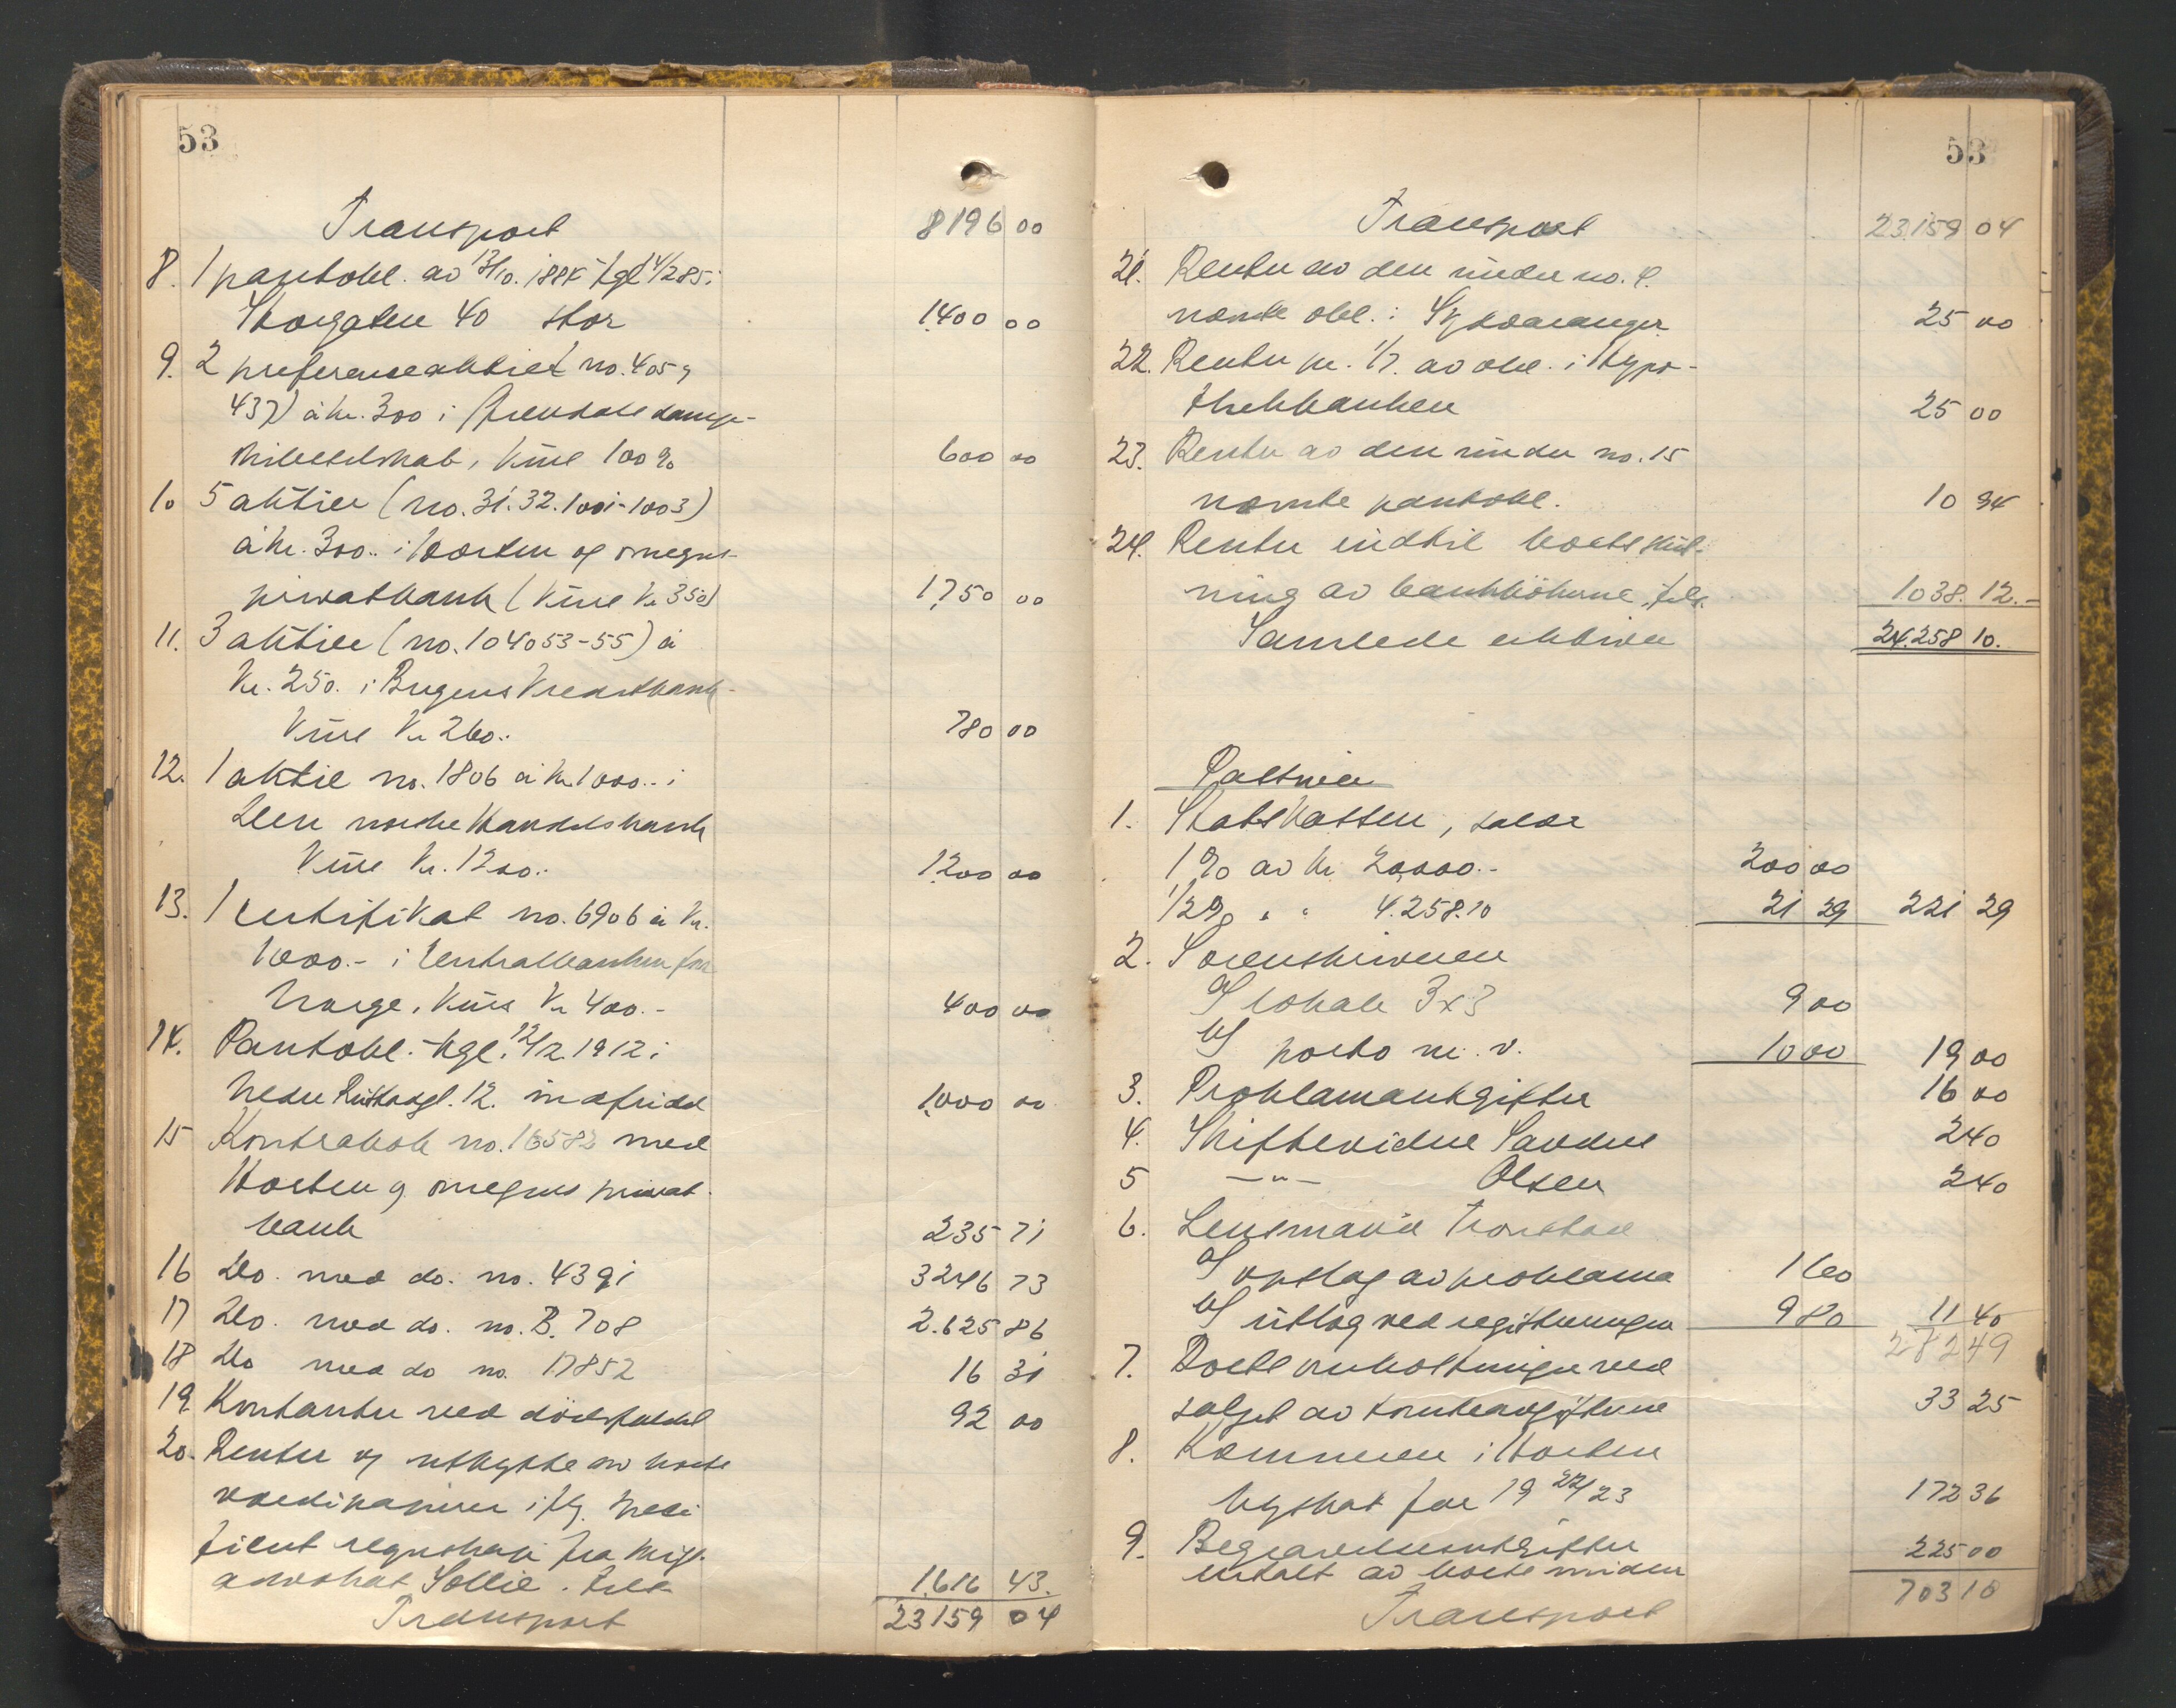 53
Transport 8196 00
8. 1 pantobl. av 13/10. 1884 tgl 14/2 85 i
Storgaten 40 stor 1400 00
9. 2 preferenceaktier no. 405 og
437) à kr. 300 i Arendals damp-
skibsselskab, kurs 100 % 600 00
10 5 aktier (no. 31. 32. 1001-1003)
à kr. 300.. i Horten og omegns
privatbank (kurs kr 350) 1750 00
11. 3 aktier (no. 104053-55) à
kr. 250. i Bergens Kreditbank -
kurs kr 260.. 780 00
12. 1 aktie no. 1806 à kr 1000.. i
Den norske Handelsbank
kurs kr. 1200.. 1200 00
13. 1 certifikat no. 6906 à kr.
1000.- i Centralbanken for
Norge, kurs kr 400.- 400 00
14. Pantobl. tgl. 12/2 1912 i
Nedre 12. 1000 00
15 Kontrabok no. 16582 med
Horten og omegns privat-
bank 235 71
16 Do. med do. no. 4391 3246 73
17 Do. med do. no. B. 708 2.625 86
18 Do med do no. 17852 16 31
19. Kontanter ved dødsfaldet 92 00
20. Renter og utbytte av boets
værdipapirer ifølg. spesi
ficert regnskap fra
advokat Sollie. tils. 1.616 43.
Transport 23159 04
53
Transport 23.159 04
21. Renter av den under no. 4.
nævnte obl. i Sydvaranger 25 00
22. Renter pr. 1/7. av obl. i Hypo-
thekbanken 25 00
23. Renter av den under no. 15
nævnte pantobl. 10 94
24. Renter indtil boets slut-
ning av bankbøkerne, tils. 1038. 12.-
Samlede aktiver 24.258 10.
Passiver
1. Statskassen, salær
1 % av kr 20,000.- 200 00
1/2 % " " 4.258.10 21 29 221 29
2. Sorenskriveren
a) lokale 3x3 9 00
b) porto m. v. 10 00 19 00
3. Proklamautgifter 16 00
4. Skiftevidne Sandne 2 40
5 -"- Olsen 2 40
6. Lensmand Tronstad
a) opslag av proklama 1 60
b) utlæg ved registreringen 9 80 11 40
282 49
7. Boets omkostninger ved
salget av 33 25
8. Kæmneren i Horten
byskat for 19 22/23 172 36
9. Begravelsesutgifter
uttalt av boets midler 225 00
Transport 703 10